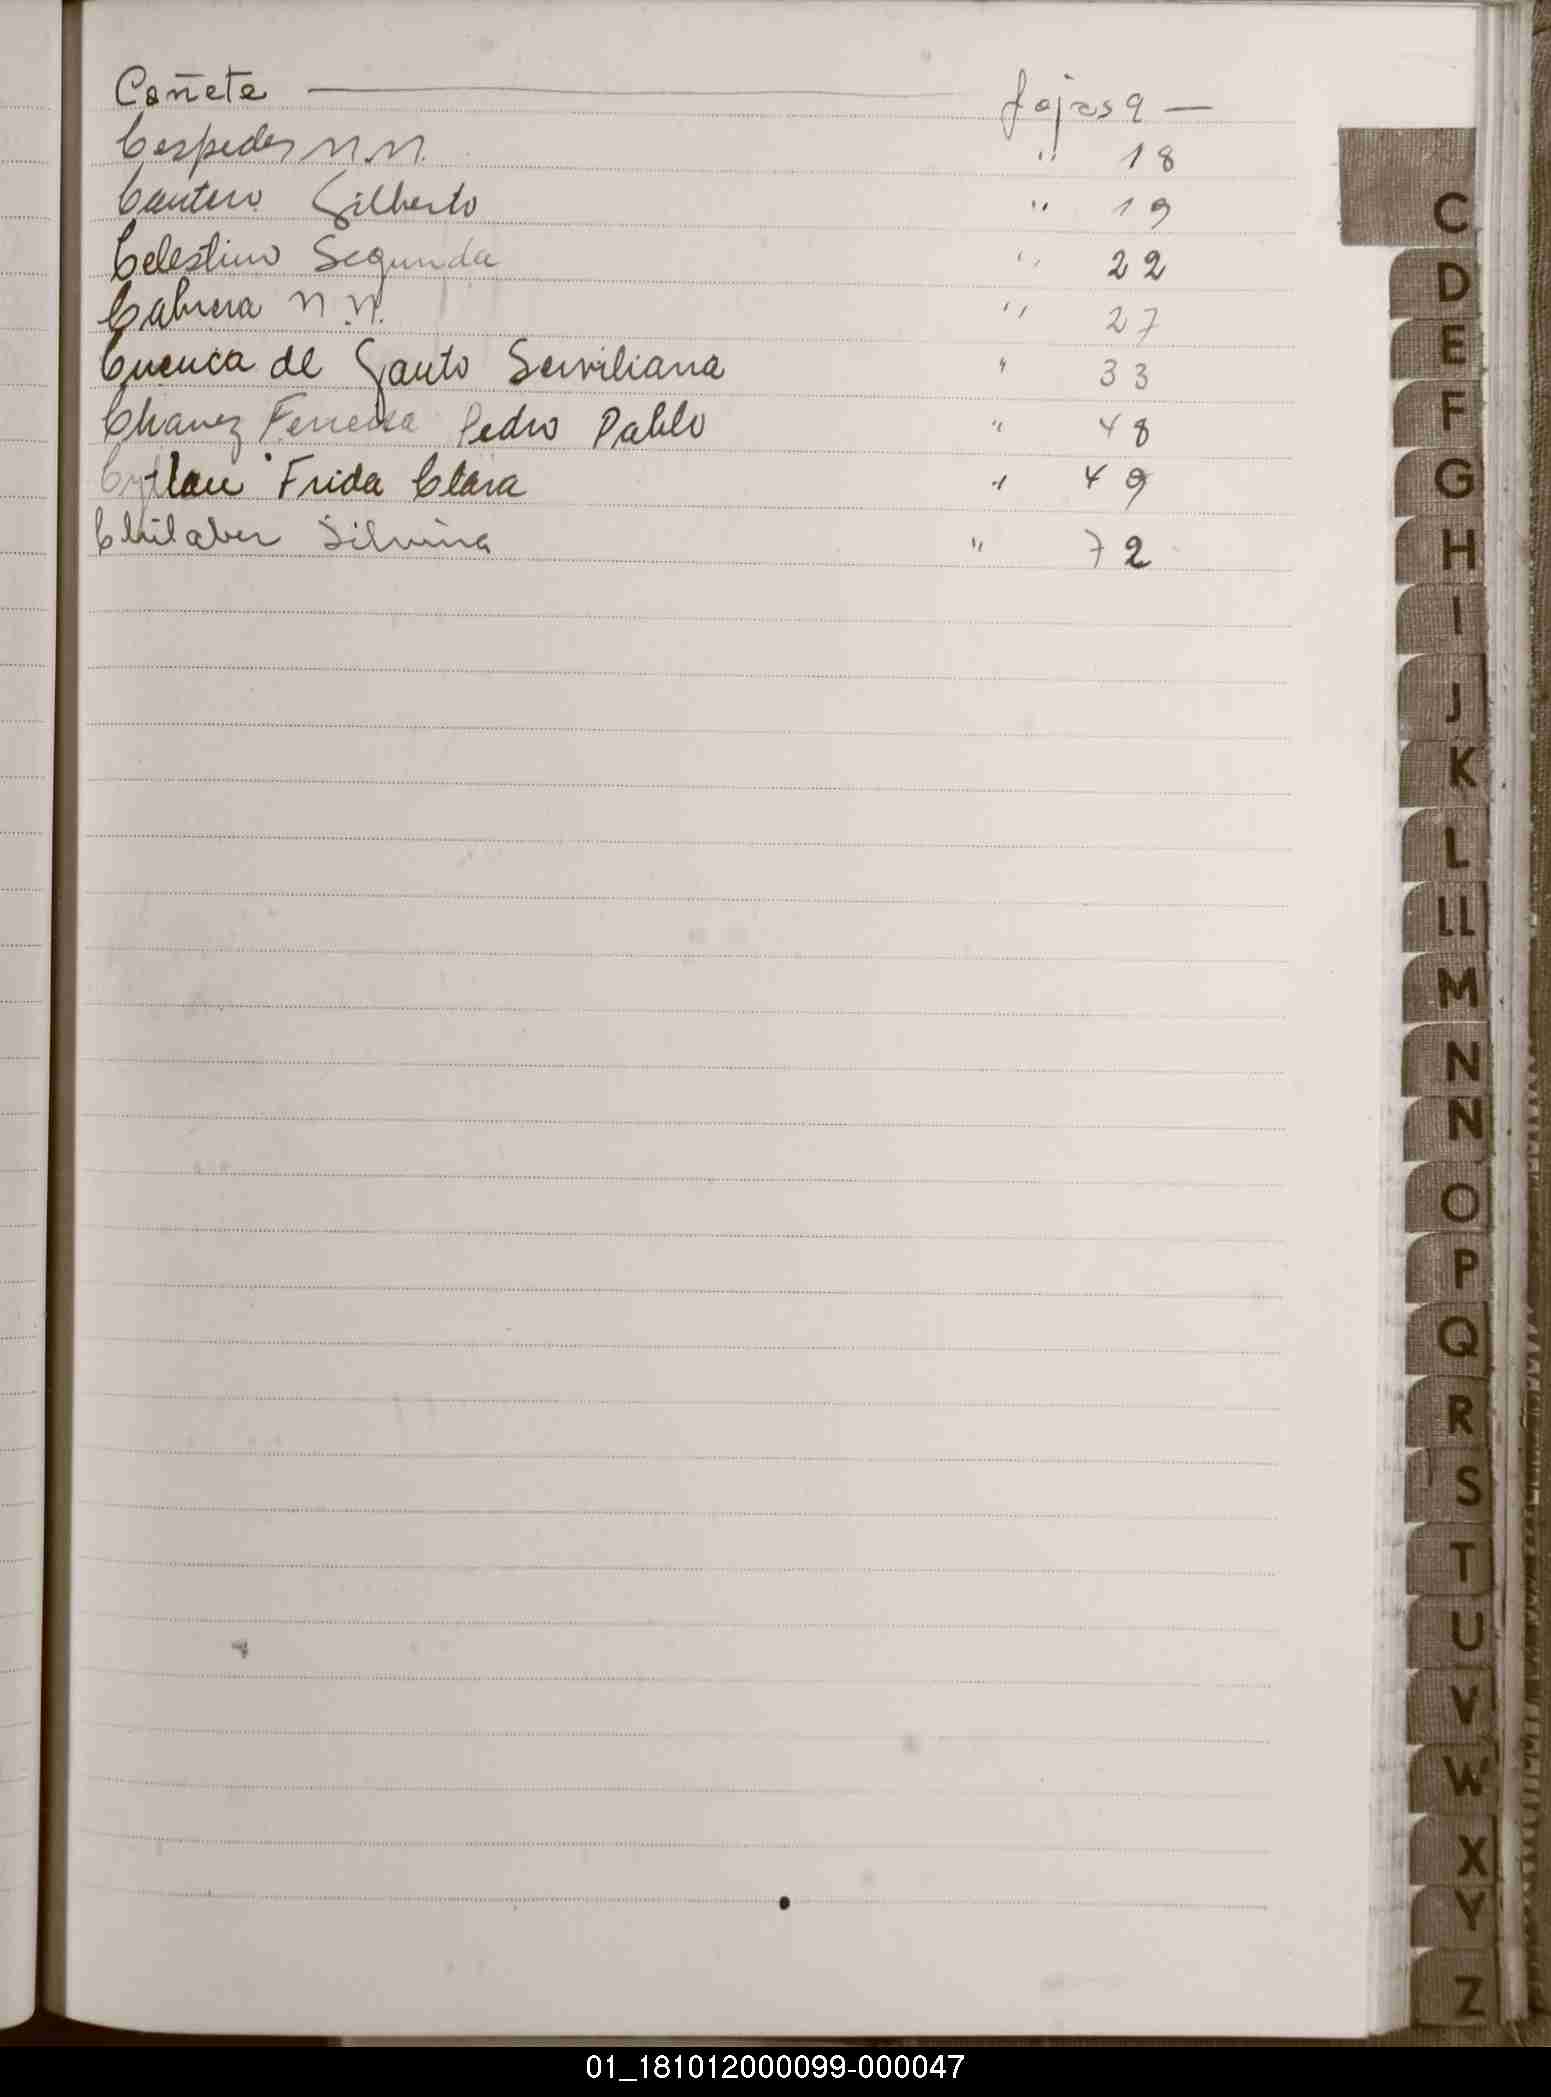 Cañete — fojas 9 —
Cespedes N.N. " 18
Cantero Gilberto " 19
Celestino Segunda " 22
Cabrera N.N. " 27
Cuenca de Gauto Serviliana " 33
Chavez Ferreira Pedro Pablo " 48
Frida Clara " 49
Chilaber Silvina " 72
C
D
E
F
G
H
I
J
K
L
LL
M
N
N
O
P
Q
R
S
T
U
V
W
X
Y
Z
01_181012000099-000047